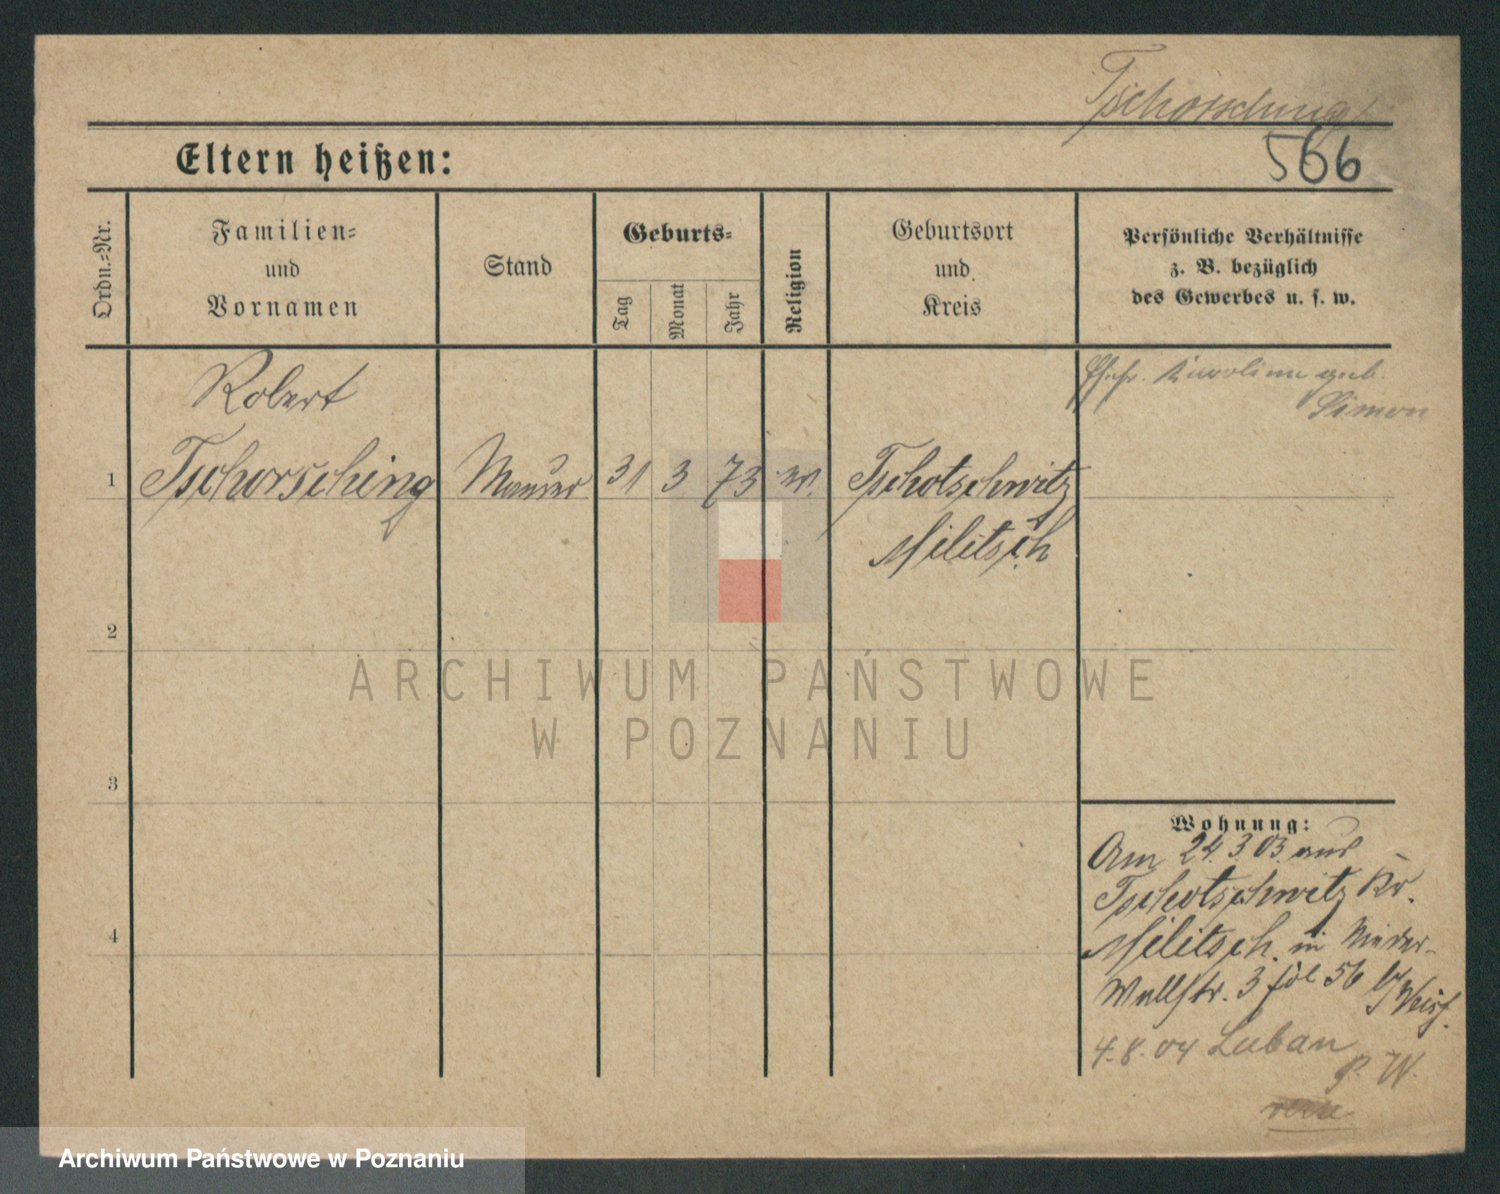 Tschorsching
566
Eltern heißen:
Ordn.-Nr.
Familien-
und
Vornamen
Stand
Geburts-
Tag
Monat
Jahr
Religion
Geburtsort
und
Kreis
Persönliche Verhältnisse
z. B. bezüglich
des Gewerbes u. s. w.
Robert
1 Tschorsching Maurer 31 3 73 Tschotschwitz
Militsch
Ehefr. Karoline geb.
Simon
2
3
4
Wohnung:
Am 24. 3. 03. aus
Tschotschwitz Kr.
Militsch. in Nieder-
Wallstr. 3 fol 56 b/
4. 8. 04 Luban
P. W.
ARCHIWUM PAŃSTWOWE
W POZNANIU
Archiwum Państwowe w Poznaniu